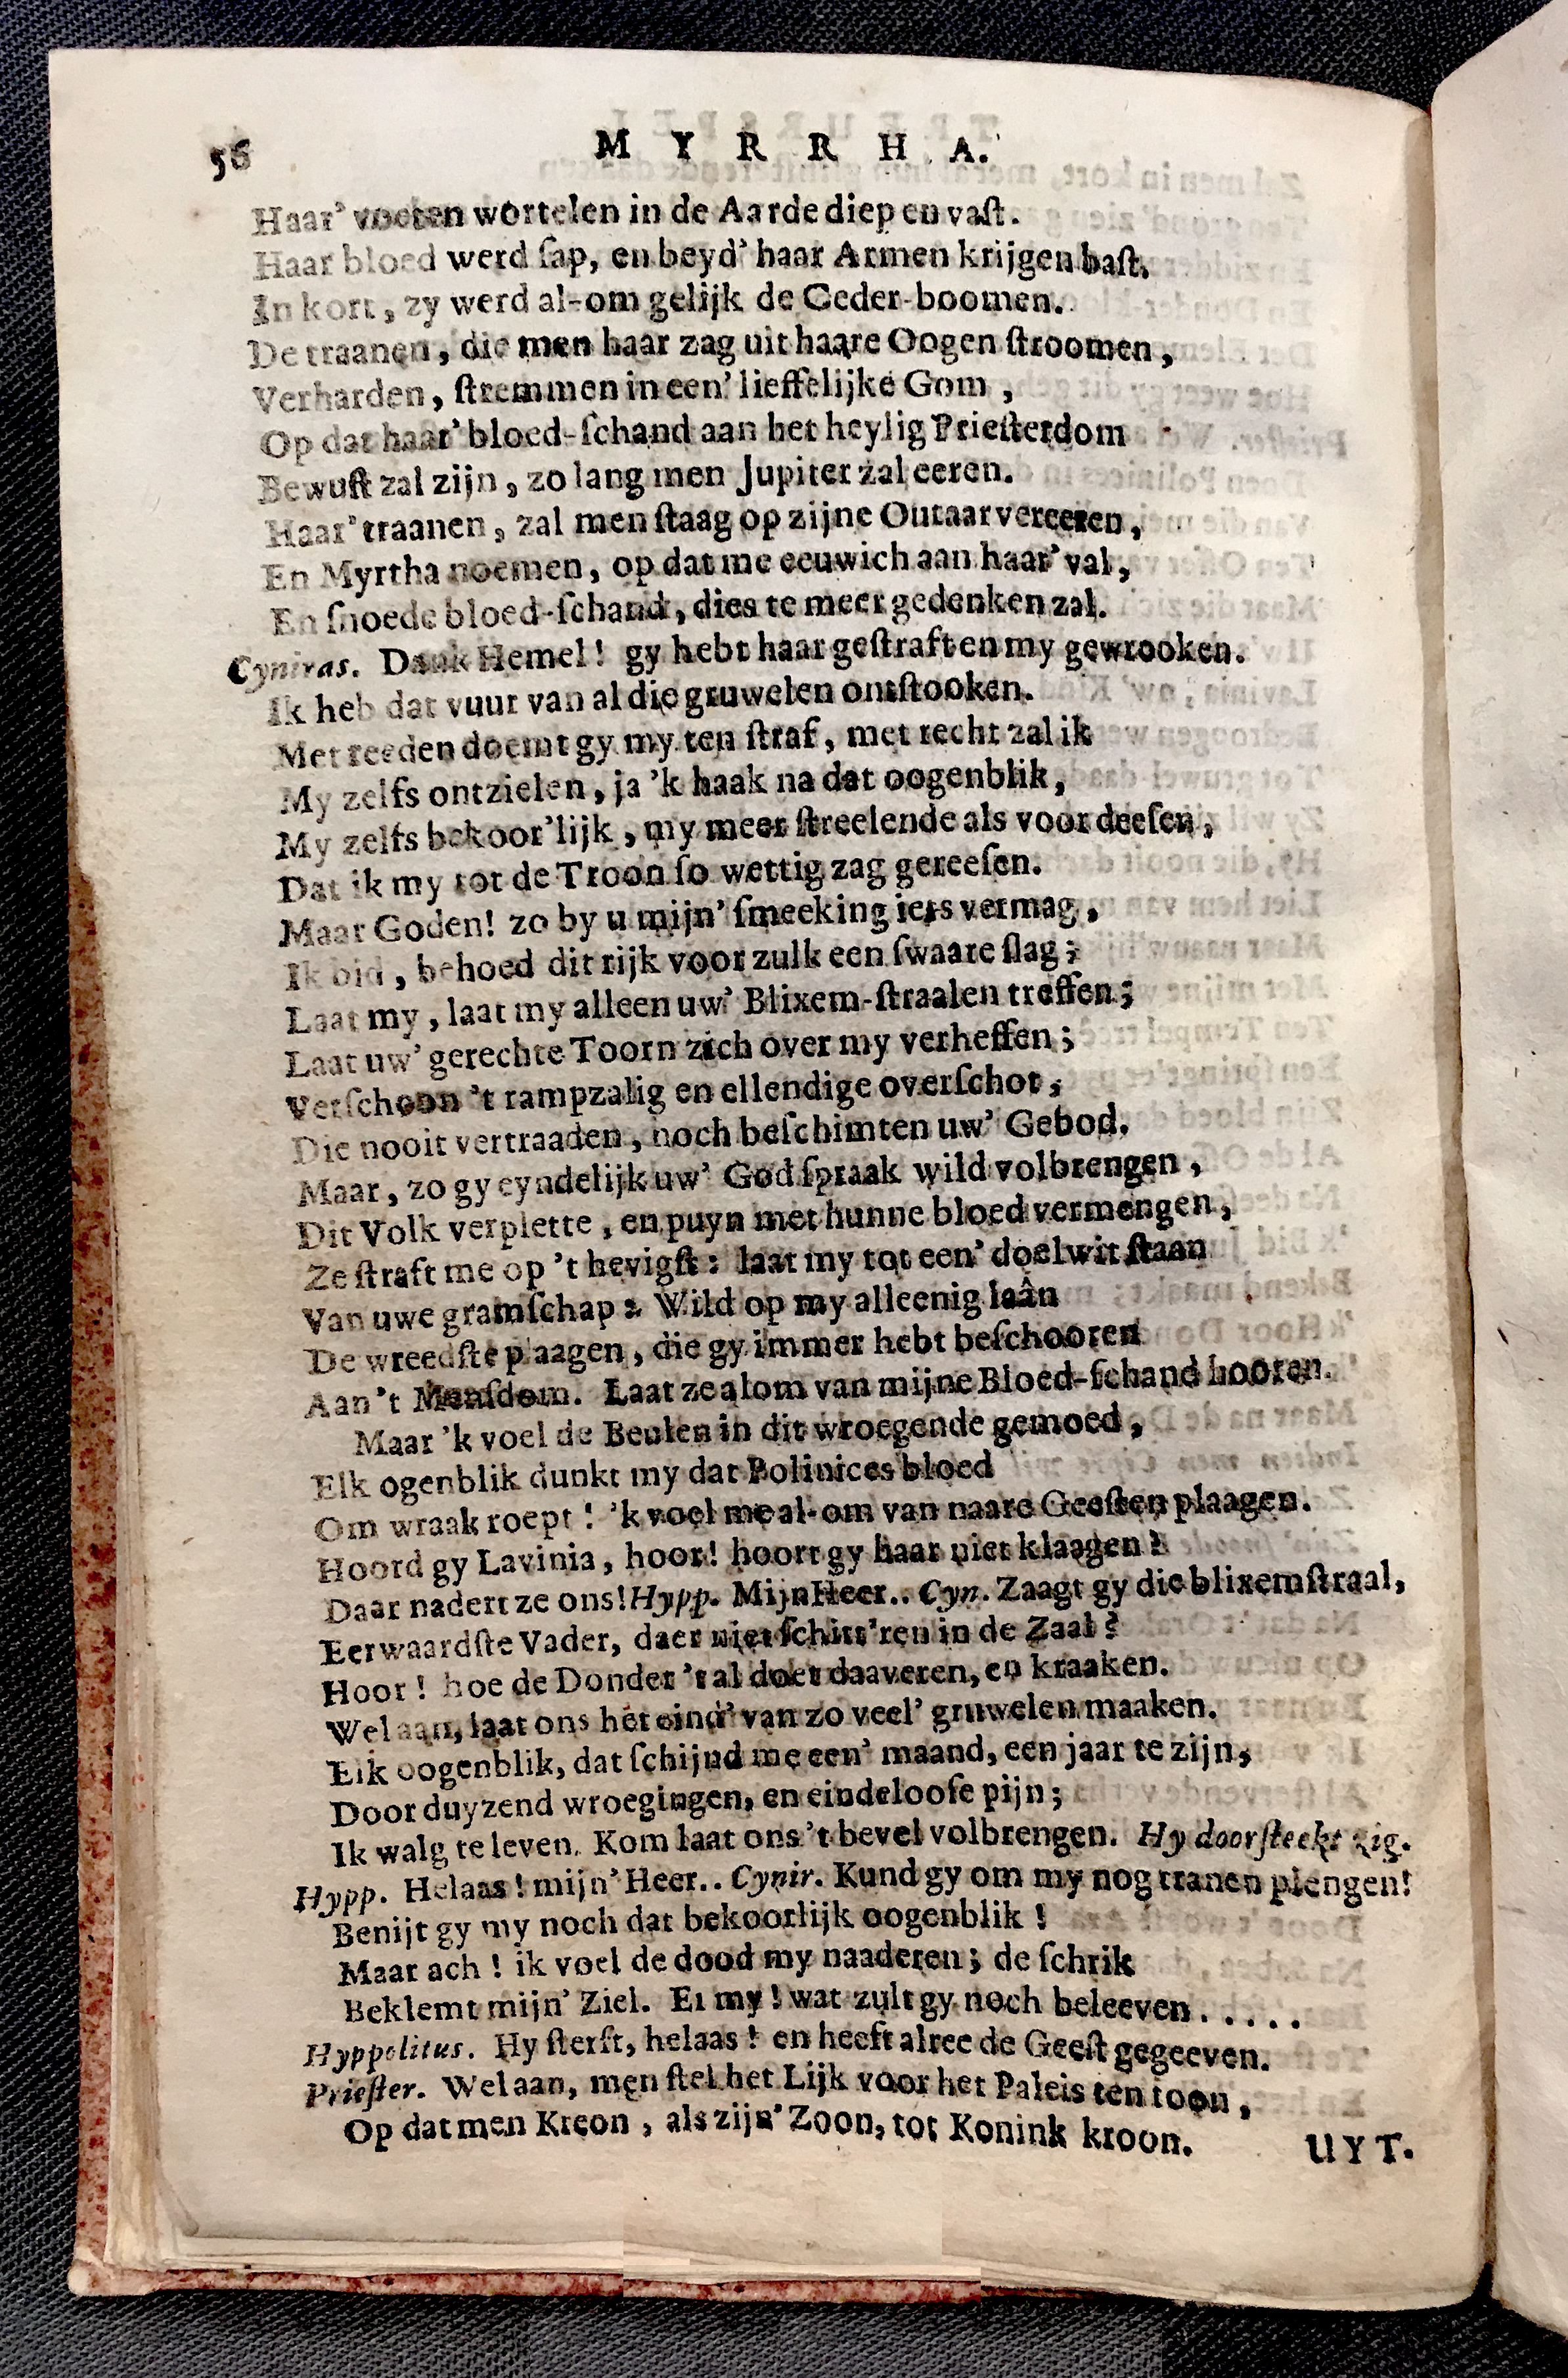 56 MYRRHA.
Haar' voeten wortelen in de Aarde diep en vaſt.
Haar bloed werd ſap, en beyd' haar Armen krijgen baſt,
In kort, zy werd al-om gelijk de Ceder-boomen.
De traanen, die men haar zag uit haare Oogen ſtroomen,
Verharden, ſtremmen in een' lieffelijke Gom,
Op dat haar' bloed-ſchand aan het heylig Prieſterdom
Bewuſt zal zijn, zo lang men Jupiter zal eeren.
Haar' traanen, zal men ſtaag op zijne Outaar vereeren,
En Myrtha noemen, op dat me eeuwich aan haar' val,
En ſnoede bloed-ſchand, dies te meer gedenken zal.
Cyniras. Dank Hemel! gy hebt haar geſtraft en my gewrooken.
Ik heb dat vuur van al die gruwelen ontſtooken.
Met reeden doemt gy my ten ſtraf, met recht zal ik
My zelfs ontzielen, ja 'k haak na dat oogenblik,
My zelfs bekoor'lijk, my meer ſtreelende als voor deeſen,
Dat ik my tot de Troon ſo wettig zag gereeſen.
Maar Goden! zo by u mijn' ſmeeking iets vermag,
Ik bid, behoed dit rijk voor zulk een ſwaare ſlag;
Laat my, laat my alleen uw' Blixem-ſtraalen treffen;
Laat uw' gerechte Toorn zich over my verheffen;
Verſchoon 't rampzalig en ellendige overſchot,
Die nooit vertraaden, noch beſchimten uw' Gebod.
Maar, zo gy eyndelijk uw' Godſpraak wild volbrengen,
Dit Volk verplette, en puyn met hunne bloed vermengen,
Ze ſtraft me op 't hevigſt: laat my tot een' doelwit ſtaan
Van uwe gramſchap: Wild op my alleenig laân
De wreedſte plaagen, die gy immer hebt beſchooren
Aan 't Menſdom. Laat ze alom van mijne Bloed-ſchand hooren.
Maar 'k voel de Beulen in dit wroegende gemoed,
Elk ogenblik dunkt my dat Polinices bloed
Om wraak roept! 'k voel me al-om van naare Geeſten plaagen.
Hoord gy Lavinia, hoor! hoort gy haar niet klaagen?
Daar nadert ze ons! Hypp. Mijn Heer.. Cyn. Zaagt gy die blixemſtraal,
Eerwaardſte Vader, daer niet ſchitt'ren in de Zaal?
Hoor! hoe de Donder 't al doet daaveren, en kraaken.
Wel aan, laat ons het eind' van zo veel' gruwelen maaken.
Elk oogenblik, dat ſchijnd me een' maand, een jaar te zijn,
Door duyzend wroegingen, en eindelooſe pijn;
Ik walg te leven. Kom laat ons 't bevel volbrengen. Hy doorſteekt zig.
Hypp. Helaas! mijn' Heer.. Cynir. Kund gy om my nog tranen plengen!
Benijt gy my noch dat bekoorlijk oogenblik!
Maar ach! ik voel de dood my naaderen; de ſchrik
Beklemt mijn' Ziel. Ei my! wat zult gy noch beleeven.....
Hyppolitus. Hy ſterft, helaas! en heeft alree de Geeſt gegeeven.
Prieſter. Wel aan, men ſtel het Lijk voor het Paleis ten toon,
Op dat men Kreon, als zijn' Zoon, tot Konink kroon.
UYT.